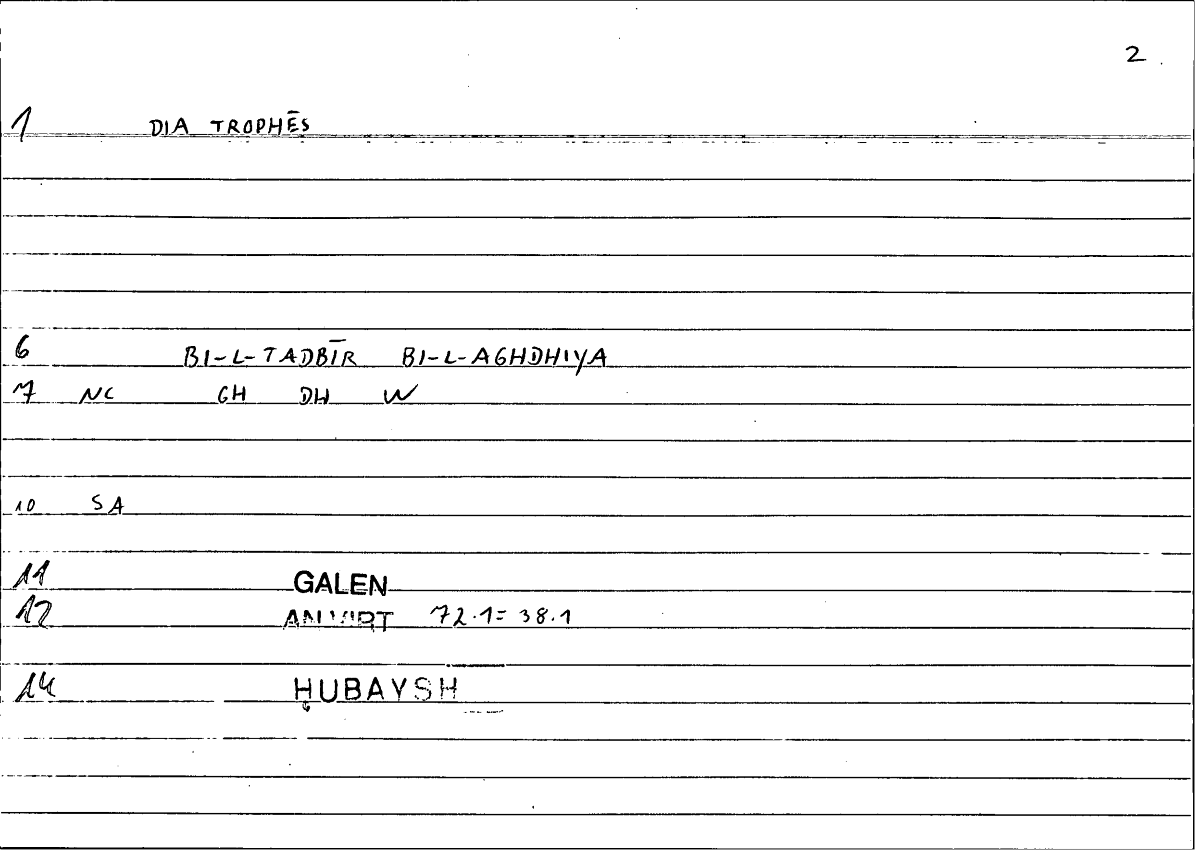 2
1 DIA TROPHĒS
6 BI-L-TADBĪR BI-L-AGHDHIYA
7 NC GH DH W
10 SA
11 GALEN
12 AN VIRT 72.1= 38.1
14 ḤUBAYSH